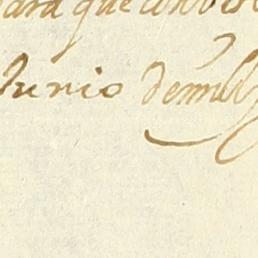 para que conb
Junio de mill